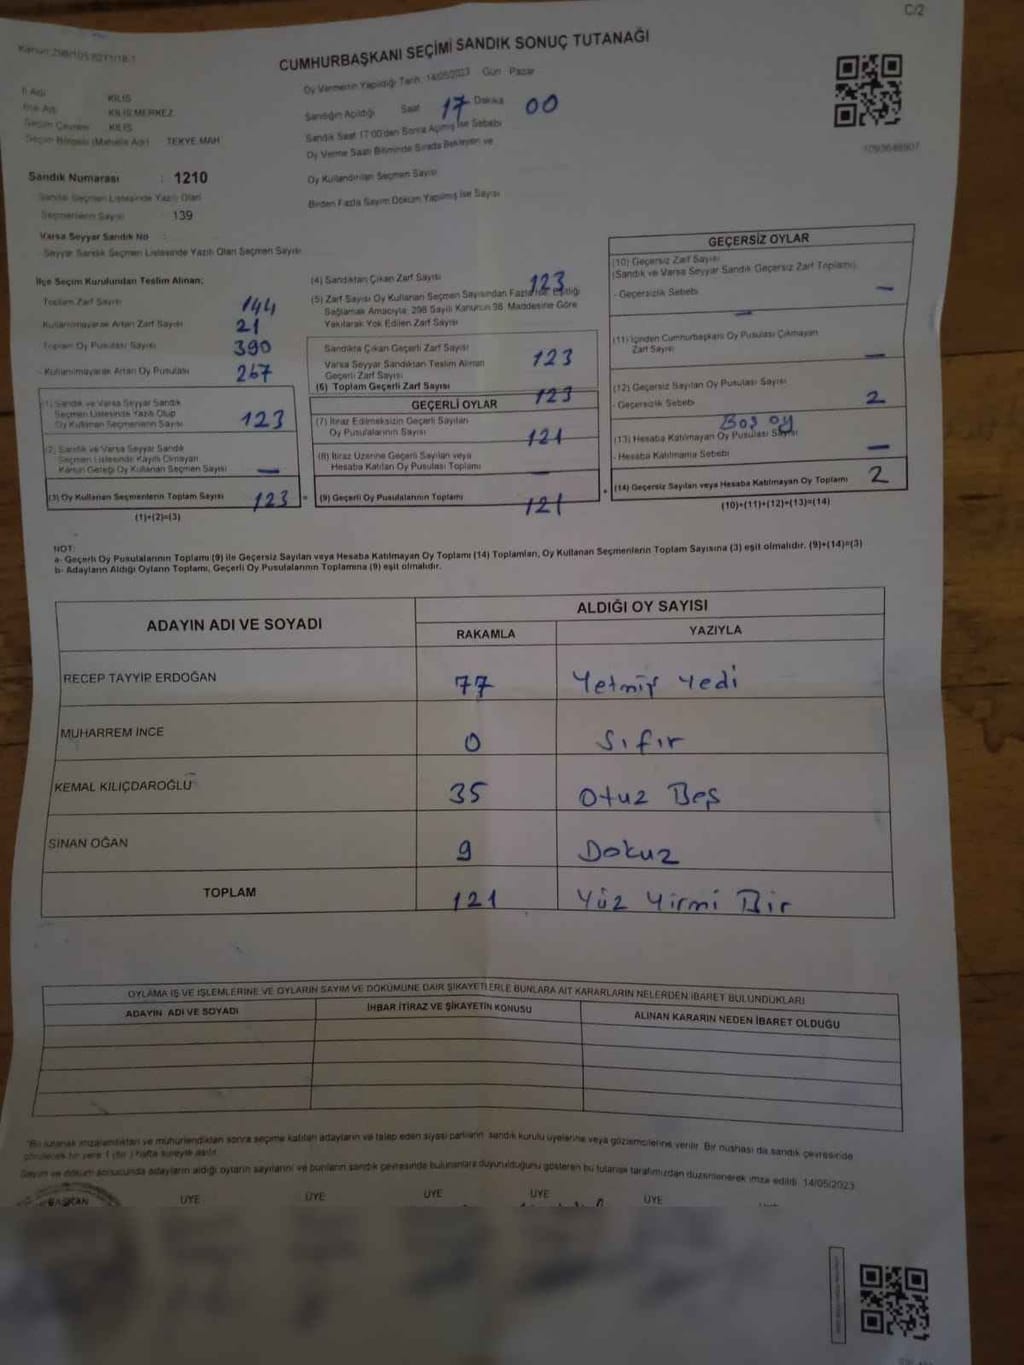 C/2
CUMHURBAŞKANI SEÇİMİ SANDIK SONUÇ TUTANAĞI
Oy Vermenin Yapıldığı Tarih: 14/05/2023 Gün Pazar
İl Adı KİLİS
İlçe Adı KİLİS MERKEZ
Seçim Çevresi KİLİS
Seçim Bölgesi (Mahalle Adı) TEKYE MAH
Sandığın Açıldığı Saat 17 Dakika 00
Sandık Saat 17:00'den Sonra Açılmış İse Sebebi
Oy Verme Saati Bitiminde Sırada Bekleyen ve
Oy Kullandırılan Seçmen Sayısı
Birden Fazla Sayım Döküm Yapılmış İse Sayısı
Sandık Numarası : 1210
Sandık Seçmen Listesinde Yazılı Olan
Seçmenlerin Sayısı 139
Varsa Seyyar Sandık No
Seyyar Sandık Seçmen Listesinde Yazılı Olan Seçmen Sayısı
İlçe Seçim Kurulundan Teslim Alınan;
Toplam Zarf Sayısı 144
Kullanılmayarak Artan Zarf Sayısı 21
Toplam Oy Pusulası Sayısı 390
- Kullanılmayarak Artan Oy Pusulası 267
(1) Sandık ve Varsa Seyyar Sandık
Seçmen Listesinde Yazılı Olup
Oy Kullanan Seçmenlerin Sayısı 123
(2) Sandık ve Varsa Seyyar Sandık
Seçmen Listesinde Kayıtlı Olmayan
Kanun Gereği Oy Kullanan Seçmen Sayısı —
(3) Oy Kullanan Seçmenlerin Toplam Sayısı 123
(1)+(2)=(3)
(4) Sandıktan Çıkan Zarf Sayısı 123
(5) Zarf Sayısı Oy Kullanan Seçmen Sayısından Fazla İse, Eşitliği
Sağlamak Amacıyla; 298 Sayılı Kanunun 98. Maddesine Göre
Yakılarak Yok Edilen Zarf Sayısı —
Sandıkta Çıkan Geçerli Zarf Sayısı 123
Varsa Seyyar Sandıktan Teslim Alınan
Geçerli Zarf Sayısı
(6) Toplam Geçerli Zarf Sayısı 123
GEÇERLİ OYLAR
(7) İtiraz Edilmeksizin Geçerli Sayılan
Oy Pusulalarının Sayısı 121
(8) İtiraz Üzerine Geçerli Sayılan veya
Hesaba Katılan Oy Pusulası Toplamı —
= (9) Geçerli Oy Pusulalarının Toplamı 121
GEÇERSİZ OYLAR
(10) Geçersiz Zarf Sayısı
(Sandık ve Varsa Seyyar Sandık Geçersiz Zarf Toplamı)
- Geçersizlik Sebebi —
(11) İçinden Cumhurbaşkanı Oy Pusulası Çıkmayan
Zarf Sayısı —
(12) Geçersiz Sayılan Oy Pusulası Sayısı 2
- Geçersizlik Sebebi Boş oy
(13) Hesaba Katılmayan Oy Pusulası Sayısı
- Hesaba Katılmama Sebebi —
+ (14) Geçersiz Sayılan veya Hesaba Katılmayan Oy Toplamı 2
(10)+(11)+(12)+(13)=(14)
NOT:
a- Geçerli Oy Pusulalarının Toplamı (9) ile Geçersiz Sayılan veya Hesaba Katılmayan Oy Toplamı (14) Toplamları, Oy Kullanan Seçmenlerin Toplam Sayısına (3) eşit olmalıdır. (9)+(14)=(3)
b- Adayların Aldığı Oyların Toplamı, Geçerli Oy Pusulalarının Toplamına (9) eşit olmalıdır.
ADAYIN ADI VE SOYADI
ALDIĞI OY SAYISI
RAKAMLA YAZIYLA
RECEP TAYYİP ERDOĞAN 77 Yetmiş Yedi
MUHARREM İNCE 0 Sıfır
KEMAL KILIÇDAROĞLU 35 Otuz Beş
SİNAN OĞAN 9 Dokuz
TOPLAM 121 Yüz Yirmi Bir
OYLAMA İŞ VE İŞLEMLERİNE VE OYLARIN SAYIM VE DÖKÜMÜNE DAİR ŞİKAYETLERLE BUNLARA AİT KARARLARIN NELERDEN İBARET BULUNDUKLARI
ADAYIN ADI VE SOYADI İHBAR İTİRAZ VE ŞİKAYETİN KONUSU ALINAN KARARIN NEDEN İBARET OLDUĞU
*Bu tutanak imzalandıktan ve mühürlendikten sonra seçime katılan adayların ve talep eden siyasi partilerin sandık kurulu üyelerine veya gözlemcilerine verilir. Bir nüshası da sandık çevresinde
görülecek bir yere 1 (bir) hafta süreyle asılır.
Sayım ve döküm sonucunda adayların aldığı oyların sayılarını ve bunların sandık çevresinde bulunanlara duyurulduğunu gösteren bu tutanak tarafımızdan düzenlenerek imza edildi. 14/05/2023
BAŞKAN ÜYE ÜYE ÜYE ÜYE ÜYE